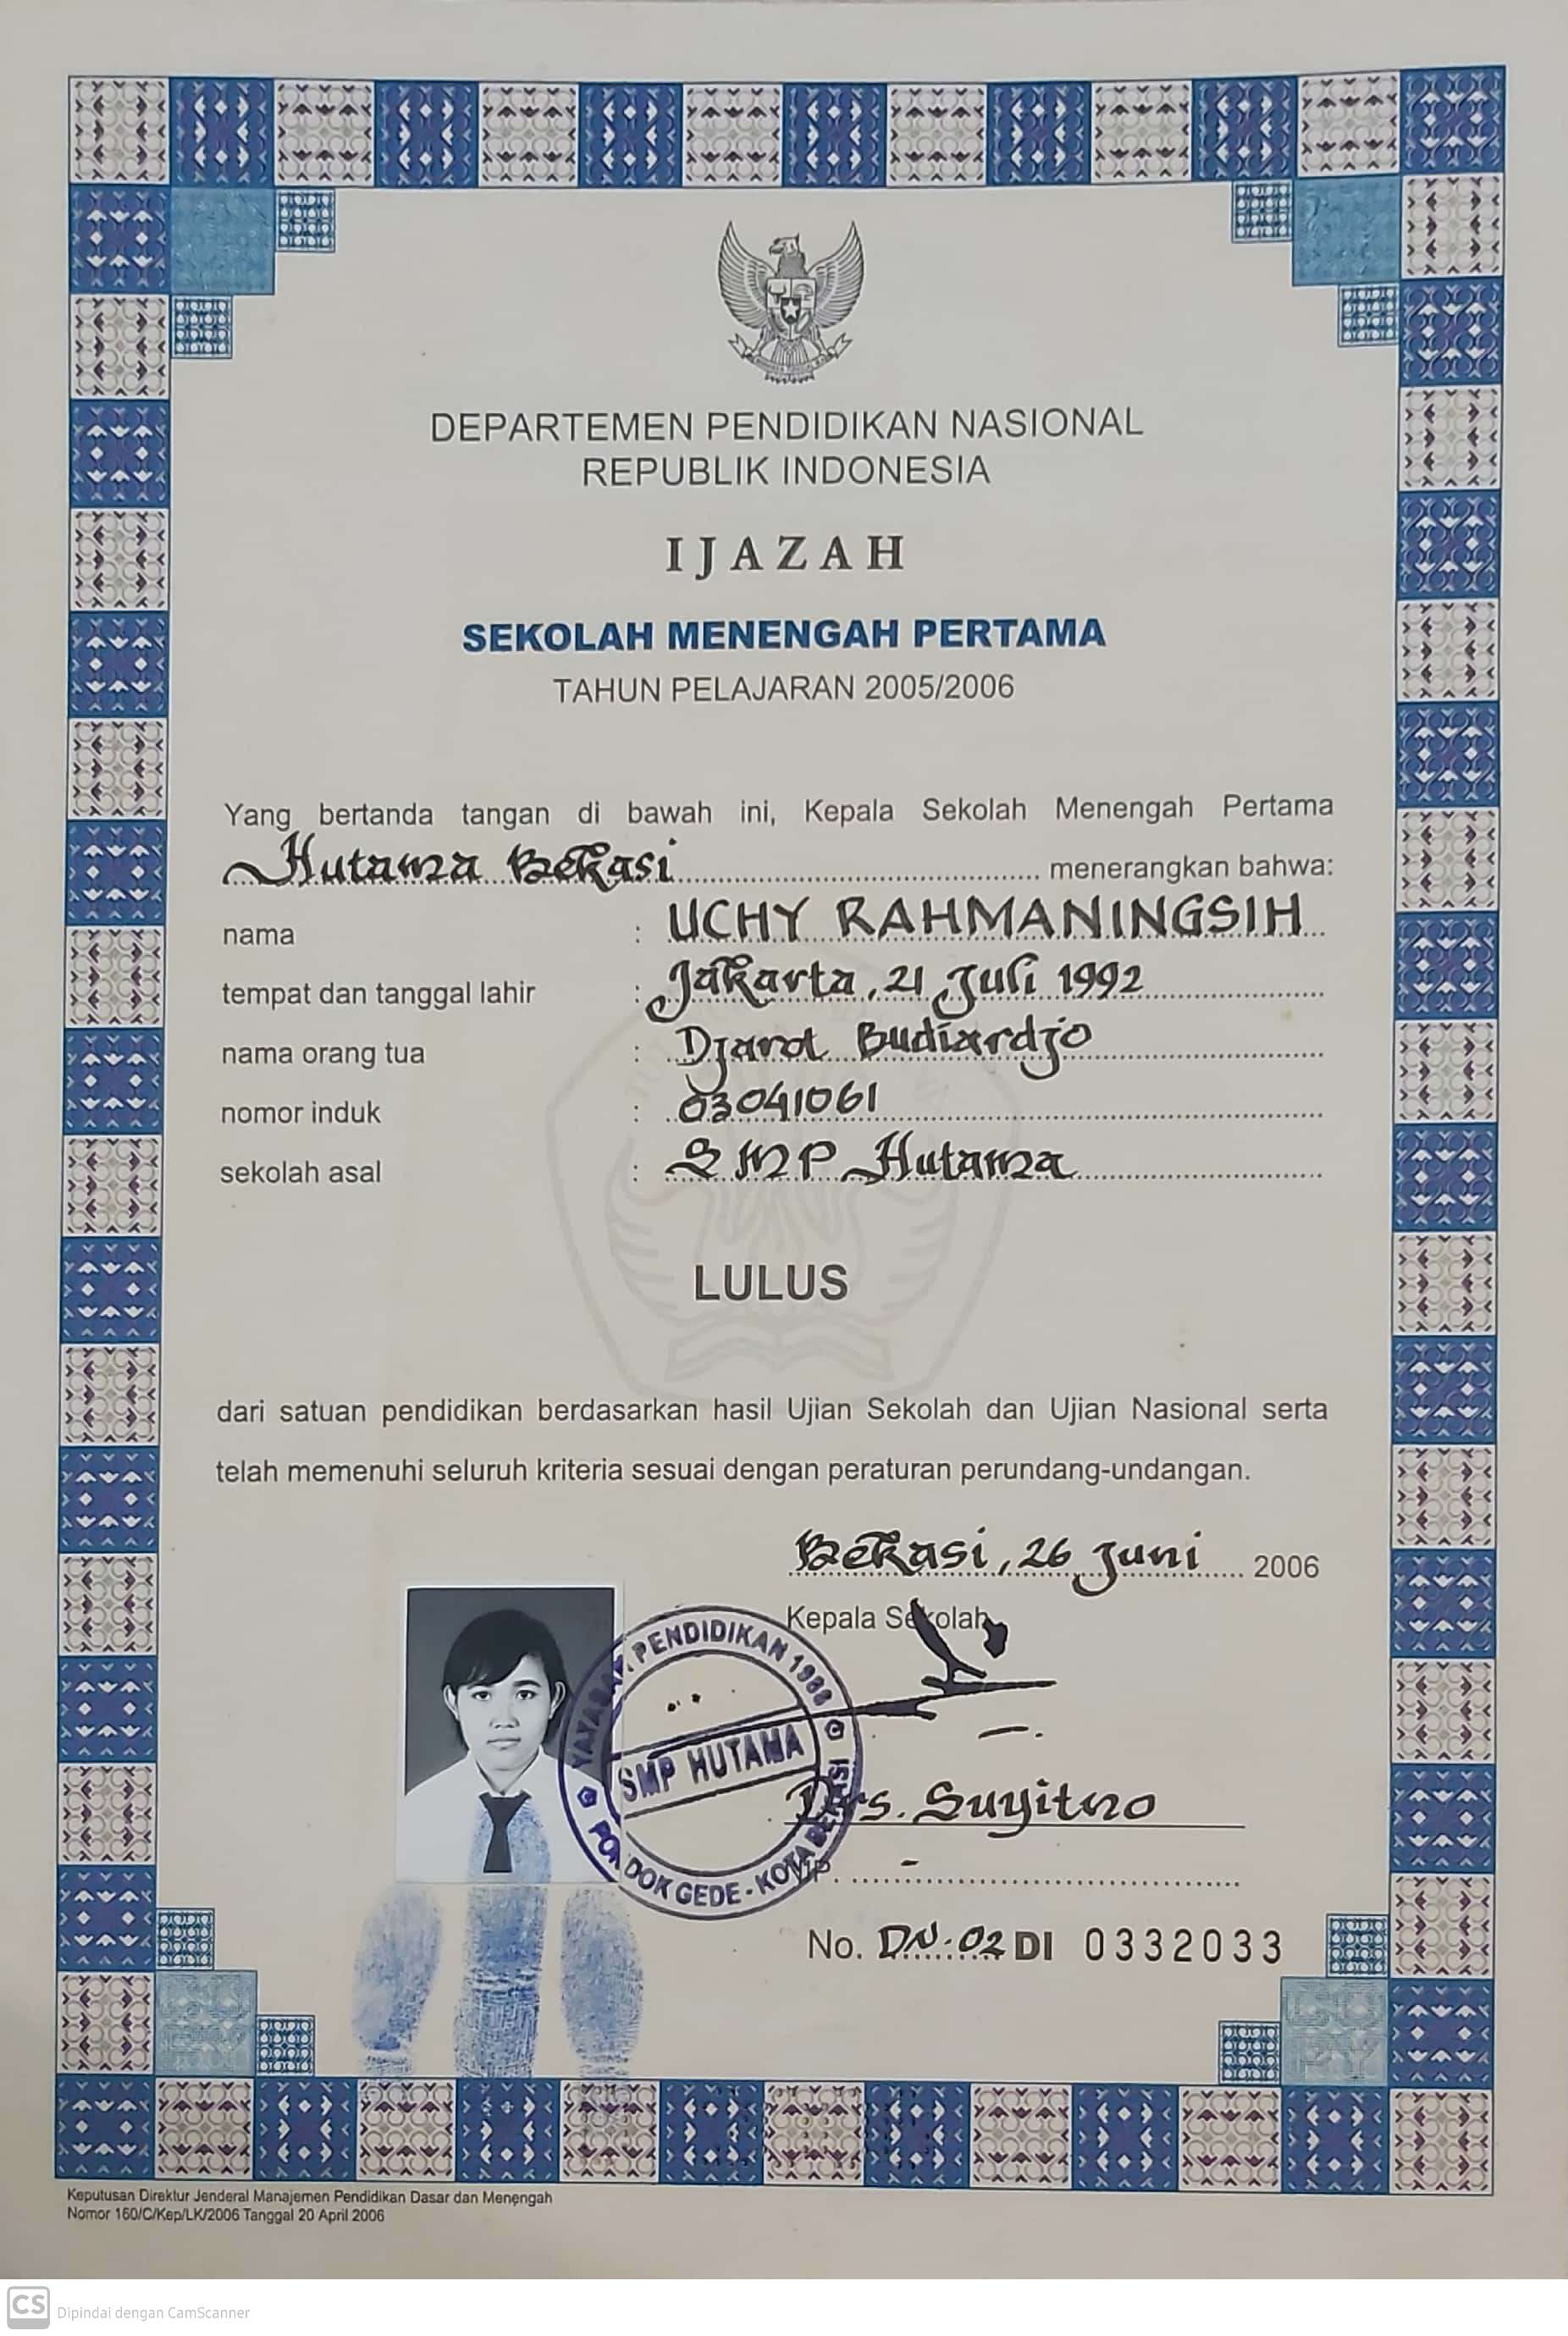 DEPARTEMEN PENDIDIKAN NASIONAL
REPUBLIK INDONESIA
IJAZAH
SEKOLAH MENENGAH PERTAMA
TAHUN PELAJARAN 2005/2006
Yang bertanda tangan di bawah ini, Kepala Sekolah Menengah Pertama
Hutama Bekasi menerangkan bahwa:
nama : UCHY RAHMANINGSIH
tempat dan tanggal lahir : Jakarta, 21 Juli 1992
nama orang tua : Djarot Budiardjo
nomor induk : 03041061
sekolah asal : SMP Hutama
LULUS
dari satuan pendidikan berdasarkan hasil Ujian Sekolah dan Ujian Nasional serta
telah memenuhi seluruh kriteria sesuai dengan peraturan perundang-undangan.
Bekasi, 26 Juni 2006
Kepala Sekolah
YAYASAN PENDIDIKAN 1988
SMP HUTAMA
PONDOK GEDE - KOTA BEKASI
Drs. Suyitno
NIP. -
No. DN-02 DI 0332033
Keputusan Direktur Jenderal Manajemen Pendidikan Dasar dan Menengah
Nomor 160/C/Kep/LK/2006 Tanggal 20 April 2006
CS Dipindai dengan CamScanner